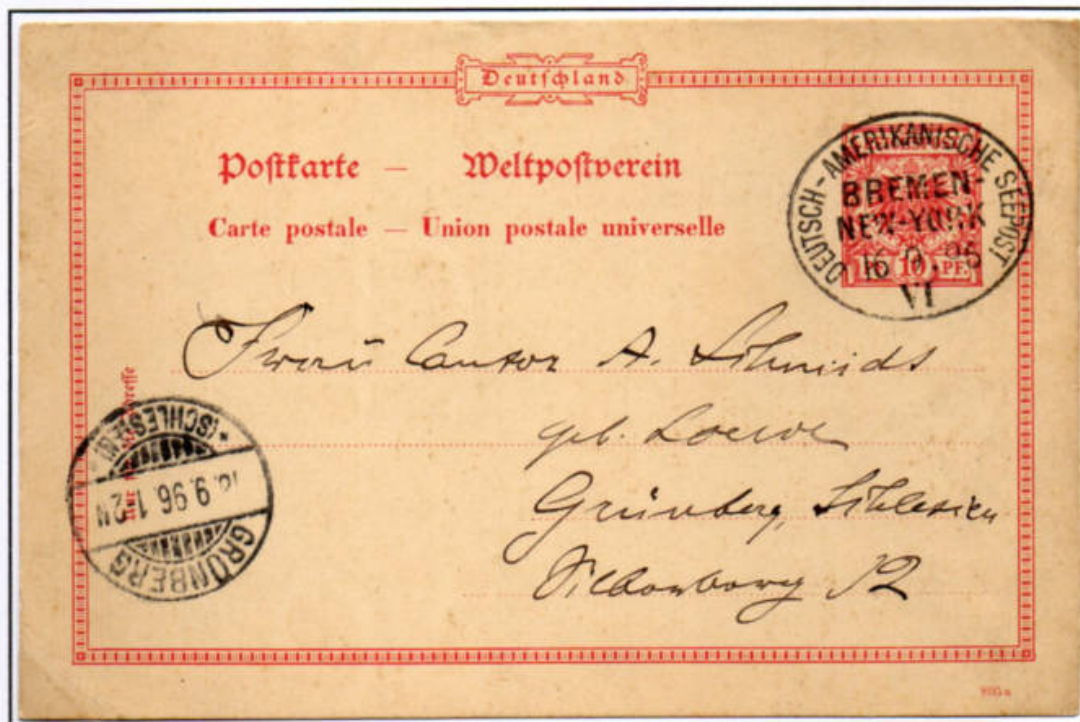 Deutschland
Postkarte — Weltpostverein
Carte postale — Union postale universelle
DEUTSCH-AMERIKANISCHE SEEPOST
BREMEN-
NEW-YORK
16 9.96
VI
10 PF.
Frau Cantor A. Schmidt
geb. Loewe
Grünberg, Schlesien
12
Nur für die Adresse
GRÜNBERG
9.96 1-2N
(SCHLESIEN)